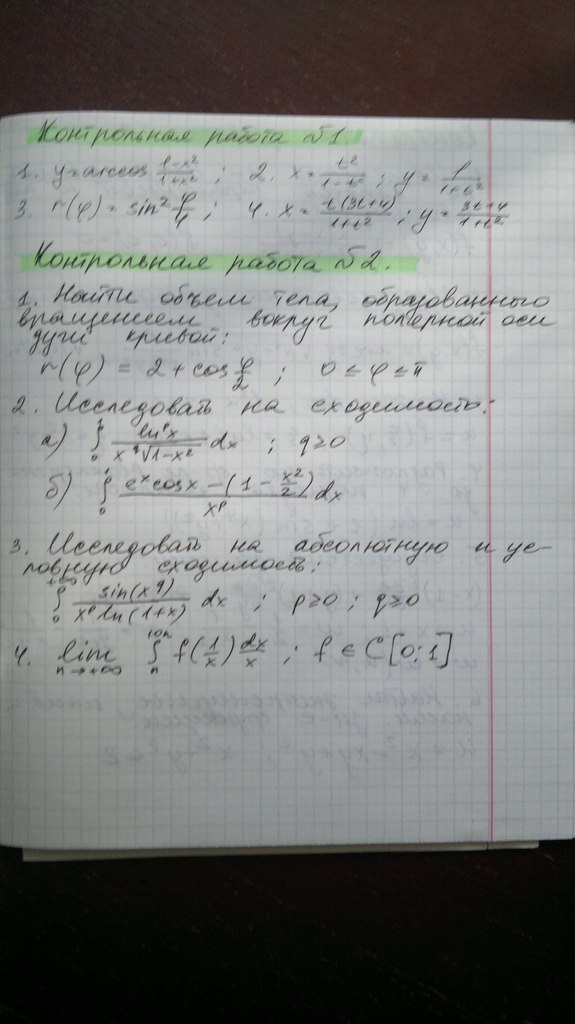 Контрольная работа №1.
1. y=arccos (1-x²)/(1+x²) ; 2. x = t²/(1-t²) ; y = 1/(1+t²)
3. r(φ) = sin² φ/4 ; 4. x = t(3t+4)/(1+t²) ; y = (3t+4)/(1+t²)
Контрольная работа №2.
1. Найти объем тела, образованного
вращением вокруг полярной оси
дуги кривой:
r(φ) = 2 + cos φ/2 ; 0 ≤ φ ≤ π
2. Исследовать на сходимость:
а) ∫₀¹ lnᵖx / (x^q √(1-x²)) dx ; q≥0
б) ∫₀¹ (eˣ cosx - (1 - x²/2)) / xᵖ dx
3. Исследовать на абсолютную и ус-
ловную сходимость:
∫₀^{+∞} sin(x^q) / (xᵖ ln(1+x)) dx ; p≥0 ; q≥0
4. lim_{n→+∞} ∫ₙ^{10n} f(1/x) dx/x ; f ∈ C[0;1]